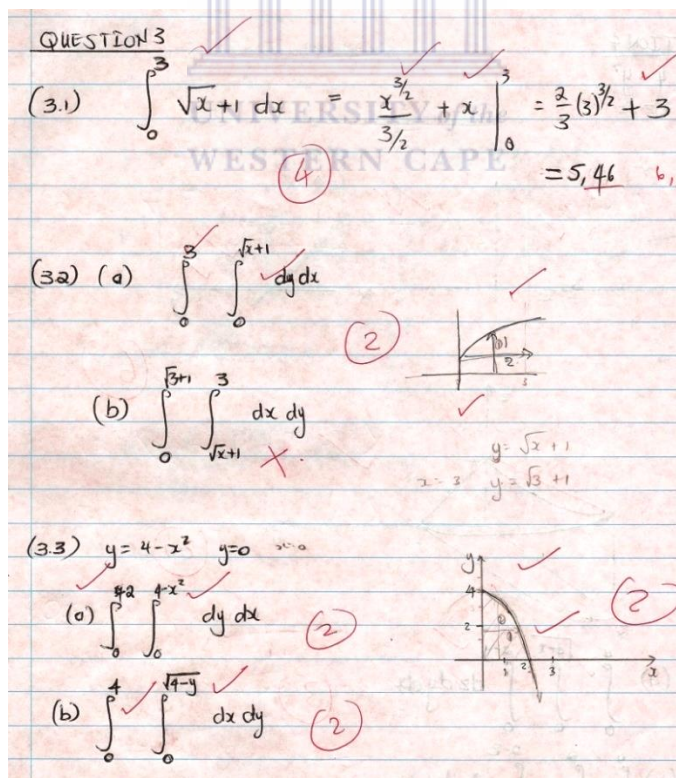 QUESTION 3
UNIVERSITY of the
WESTERN CAPE
(3.1) ∫₀³ √x + 1 dx = x^(3/2)/(3/2) + x |₀³ = 2/3 (3)^(3/2) + 3
= 5,46 6,
4
(3.2) (a) ∫₀³ ∫₀^(√x+1) dy dx
2
1
2
3
(b) ∫₀^(√3+1) ∫_(√x+1)^3 dx dy
y = √x + 1
x = 3 y = √3 + 1
(3.3) y = 4 - x² y = 0 x=0
(a) ∫₀² ∫₀^(4-x²) dy dx
2
(b) ∫₀⁴ ∫₀^(√(4-y)) dx dy
2
y
4
2
1 2 3
x
2